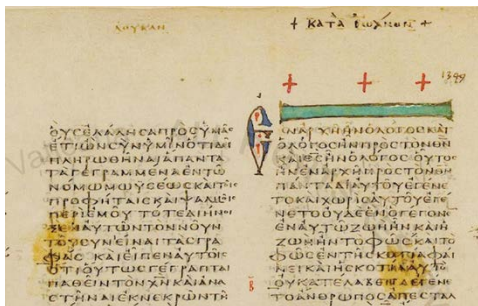 ΛΟΥΚΑΝ
+ ΚΑΤΑ ΙΩΑΝΝΗΝ +
1349
ΟΥΣΕΛΑΛΗΣΑΠΡΟΣΥΜΑΣ
ΕΤΙΩΝΣΥΝΥΜΙΝΟΤΙΔΙ
ΠΛΗΡΩΘΗΝΑΙΑΠΑΝΤΑ
ΤΑΓΕΓΡΑΜΜΕΝΑΕΝΤΩ
ΝΟΜΩΜΩΥΣΕΩΣΚΑΙ
ΠΡΟΦΗΤΑΙΣΚΑΙΨΑΛΜΟΙΣ
ΠΕΡΙΕΜΟΥΤΟΤΕΔΙΗΝΟΙ
ΞΕΝΑΥΤΩΝΤΟΝΝΟΥΝ
ΤΟΥΣΥΝΕΙΝΑΙΤΑΣΓΡΑ
ΦΑΣ ΚΑΙΕΙΠΕΝΑΥΤΟΙΣ
ΟΤΙΟΥΤΩΣΓΕΓΡΑΠΤΑΙ
ΠΑΘΕΙΝΤΟΝΧΝΚΑΙΑΝΑ
ΣΤΗΝΑΙΕΚΝΕΚΡΩΝΤΗ
ΕΝΑΡΧΗΗΝΟΛΟΓΟΣΚΑΙ
ΟΛΟΓΟΣΗΝΠΡΟΣΤΟΝΘΝ
ΚΑΙΘΣΗΝΟΛΟΓΟΣΟΥΤΟΣ
ΗΝΕΝΑΡΧΗΠΡΟΣΤΟΝΘΝ
ΠΑΝΤΑΔΙΑΥΤΟΥΕΓΕΝΕ
ΤΟΚΑΙΧΩΡΙΣΑΥΤΟΥΕΓΕ
ΝΕΤΟΥΔΕΕΝΟΓΕΓΟΝΕ
ΕΝΑΥΤΩΖΩΗΗΝΚΑΙΗ
ΖΩΗΗΝΤΟΦΩΣΚΑΙΤΟ
ΦΩΣΕΝΤΗΣΚΟΤΙΑΦΑΙ
ΝΕΙΚΑΙΗΣΚΟΤΙΑΑΥΤΟ
ΟΥΚΑΤΕΛΑΒΕΝΕΓΕΝΕ
ΤΟΑΝΘΡΩΠΟΣΑΠΕΣΤΑΛ